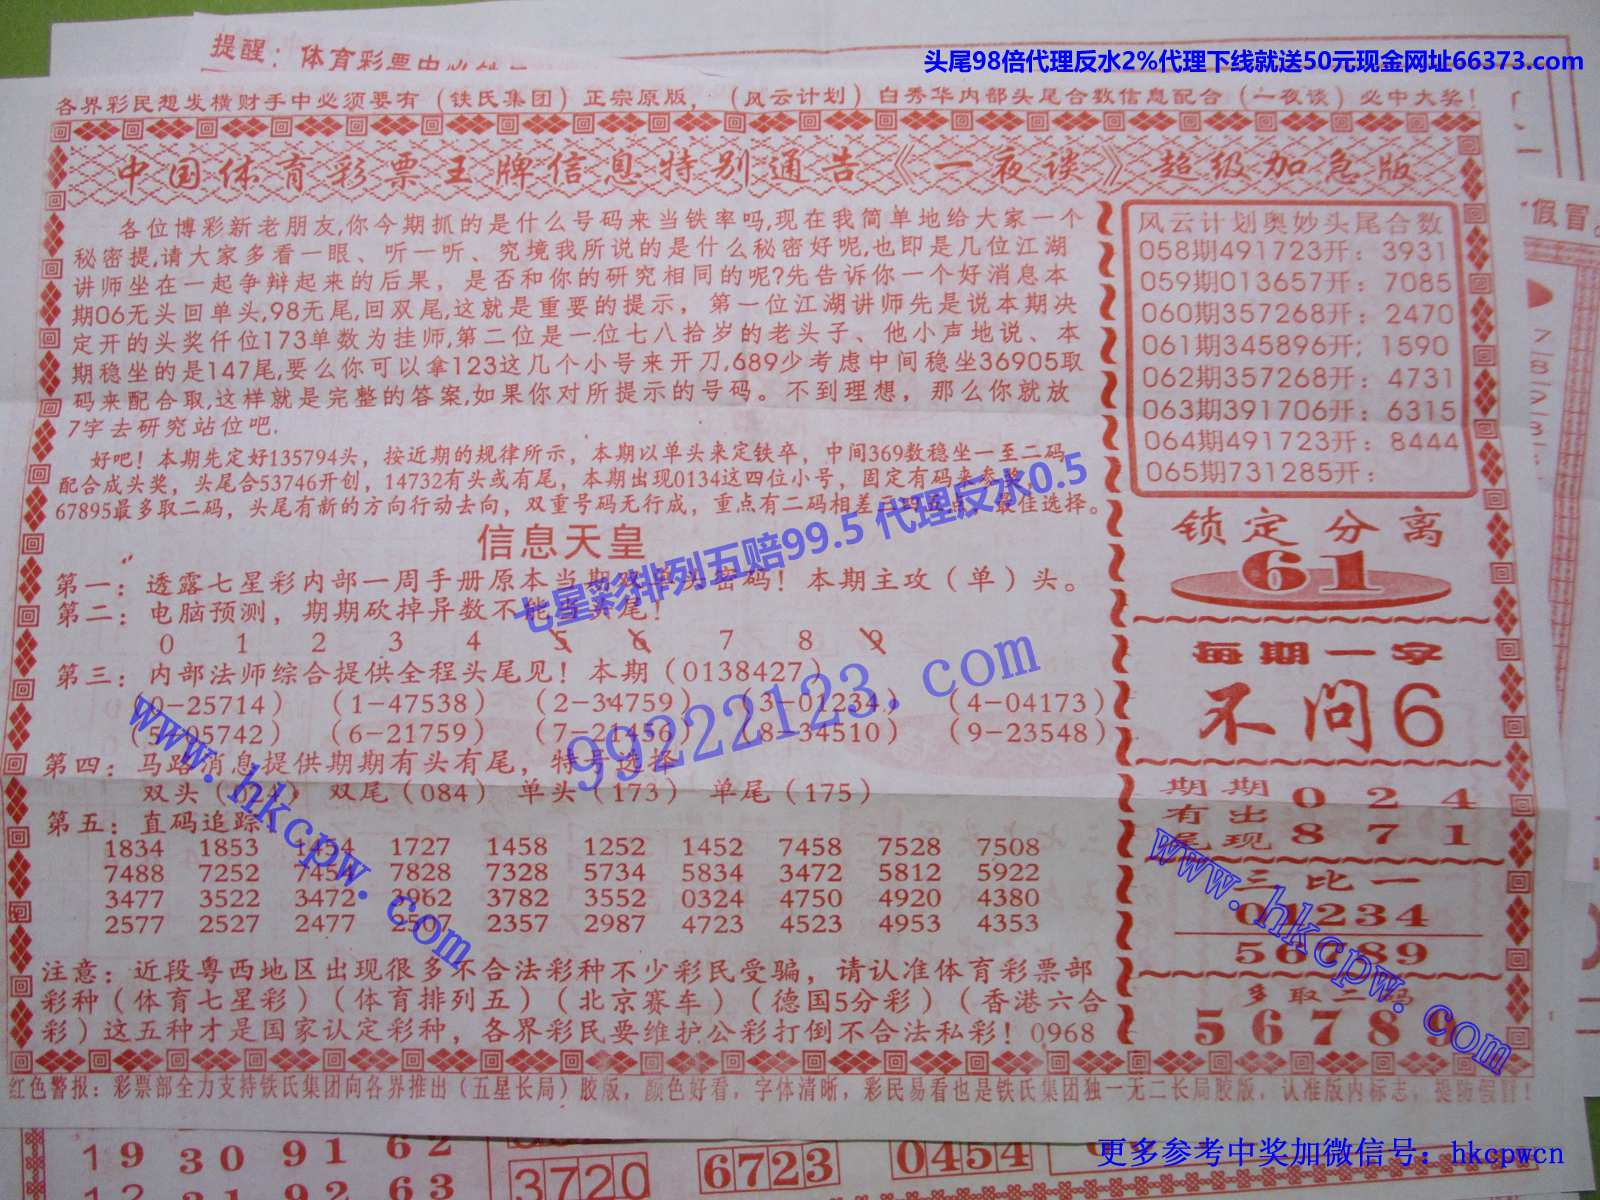 头尾98倍代理反水2%代理下线就送50元现金网址66373.com
提醒：体育彩票中
各界彩民想发横财手中必须要有（铁氏集团）正宗原版，（风云计划）白秀华内部头尾合数信息配合（一夜谈）必中大奖！
中国体育彩票王牌信息特别通告《一夜谈》超级加急版
各位博彩新老朋友,你今期抓的是什么号码来当铁率吗,现在我简单地给大家一个
秘密提,请大家多看一眼、听一听、究境我所说的是什么秘密好呢,也即是几位江湖
讲师坐在一起争辩起来的后果，是否和你的研究相同的呢?先告诉你一个好消息本
期06无头回单头,98无尾,回双尾,这就是重要的提示，第一位江湖讲师先是说本期决
定开的头奖仟位173单数为挂师,第二位是一位七八拾岁的老头子、他小声地说、本
期稳坐的是147尾,要么你可以拿123这几个小号来开刀,689少考虑中间稳坐36905取
码来配合取,这样就是完整的答案,如果你对所提示的号码。不到理想，那么你就放
7字去研究站位吧.
好吧！本期先定好135794头，按近期的规律所示，本期以单头来定铁卒，中间369数稳坐一至二码
配合成头奖，头尾合53746开创，14732有头或有尾，本期出现0134这四位小号，固定有码来参奖
67895最多取二码，头尾有新的方向行动去向，双重号码无行成，重点有二码相差二码至点，最佳选择。
七星彩排列五赔99.5 代理反水0.5
信息天皇
第一：透露七星彩内部一周手册原本当期双单头密码！本期主攻（单）头。
第二：电脑预测，期期砍掉异数不能当头尾！
0 1 2 3 4 5 6 7 8 9
第三：内部法师综合提供全程头尾见！本期（0138427）
（0-25714）（1-47538）（2-34759）（3-01234）（4-04173）
（5-05742）（6-21759）（7-21456）（8-34510）（9-23548）
第四：马路消息提供期期有头有尾，特号选择
双头（ 24）双尾（084）单头（173）单尾（175）
第五：直码追踪
1834 1853 1454 1727 1458 1252 1452 7458 7528 7508
7488 7252 7454 7828 7328 5734 5834 3472 5812 5922
3477 3522 3472 3962 3782 3552 0324 4750 4920 4380
2577 2527 2477 2507 2357 2987 4723 4523 4953 4353
注意：近段粤西地区出现很多不合法彩种不少彩民受骗，请认准体育彩票部
彩种（体育七星彩）（体育排列五）（北京赛车）（德国5分彩）（香港六合
彩）这五种才是国家认定彩种，各界彩民要维护公彩打倒不合法私彩！0968
99222123.com
www.hkcpw.com
风云计划奥妙头尾合数
058期491723开：3931
059期013657开：7085
060期357268开：2470
061期345896开；1590
062期357268开：4731
063期391706开：6315
064期491723开：8444
065期731285开：
锁定分离
61
每期一字
不问6
期期 0 2 4
有出
尾现 8 7 1
三比一
01234
56789
多取二码
5 6 7 8 9
www.hkcpw.com
红色警报：彩票部全力支持铁氏集团向各界推出（五星长局）胶版，颜色好看，字体清晰，彩民易看也是铁氏集团独一无二长局胶版，认准版内标志，提防假冒！
假冒。
19 30 91 62
3720 6723 0454
12 31 92 63
更多参考中奖加微信号：hkcpwcn